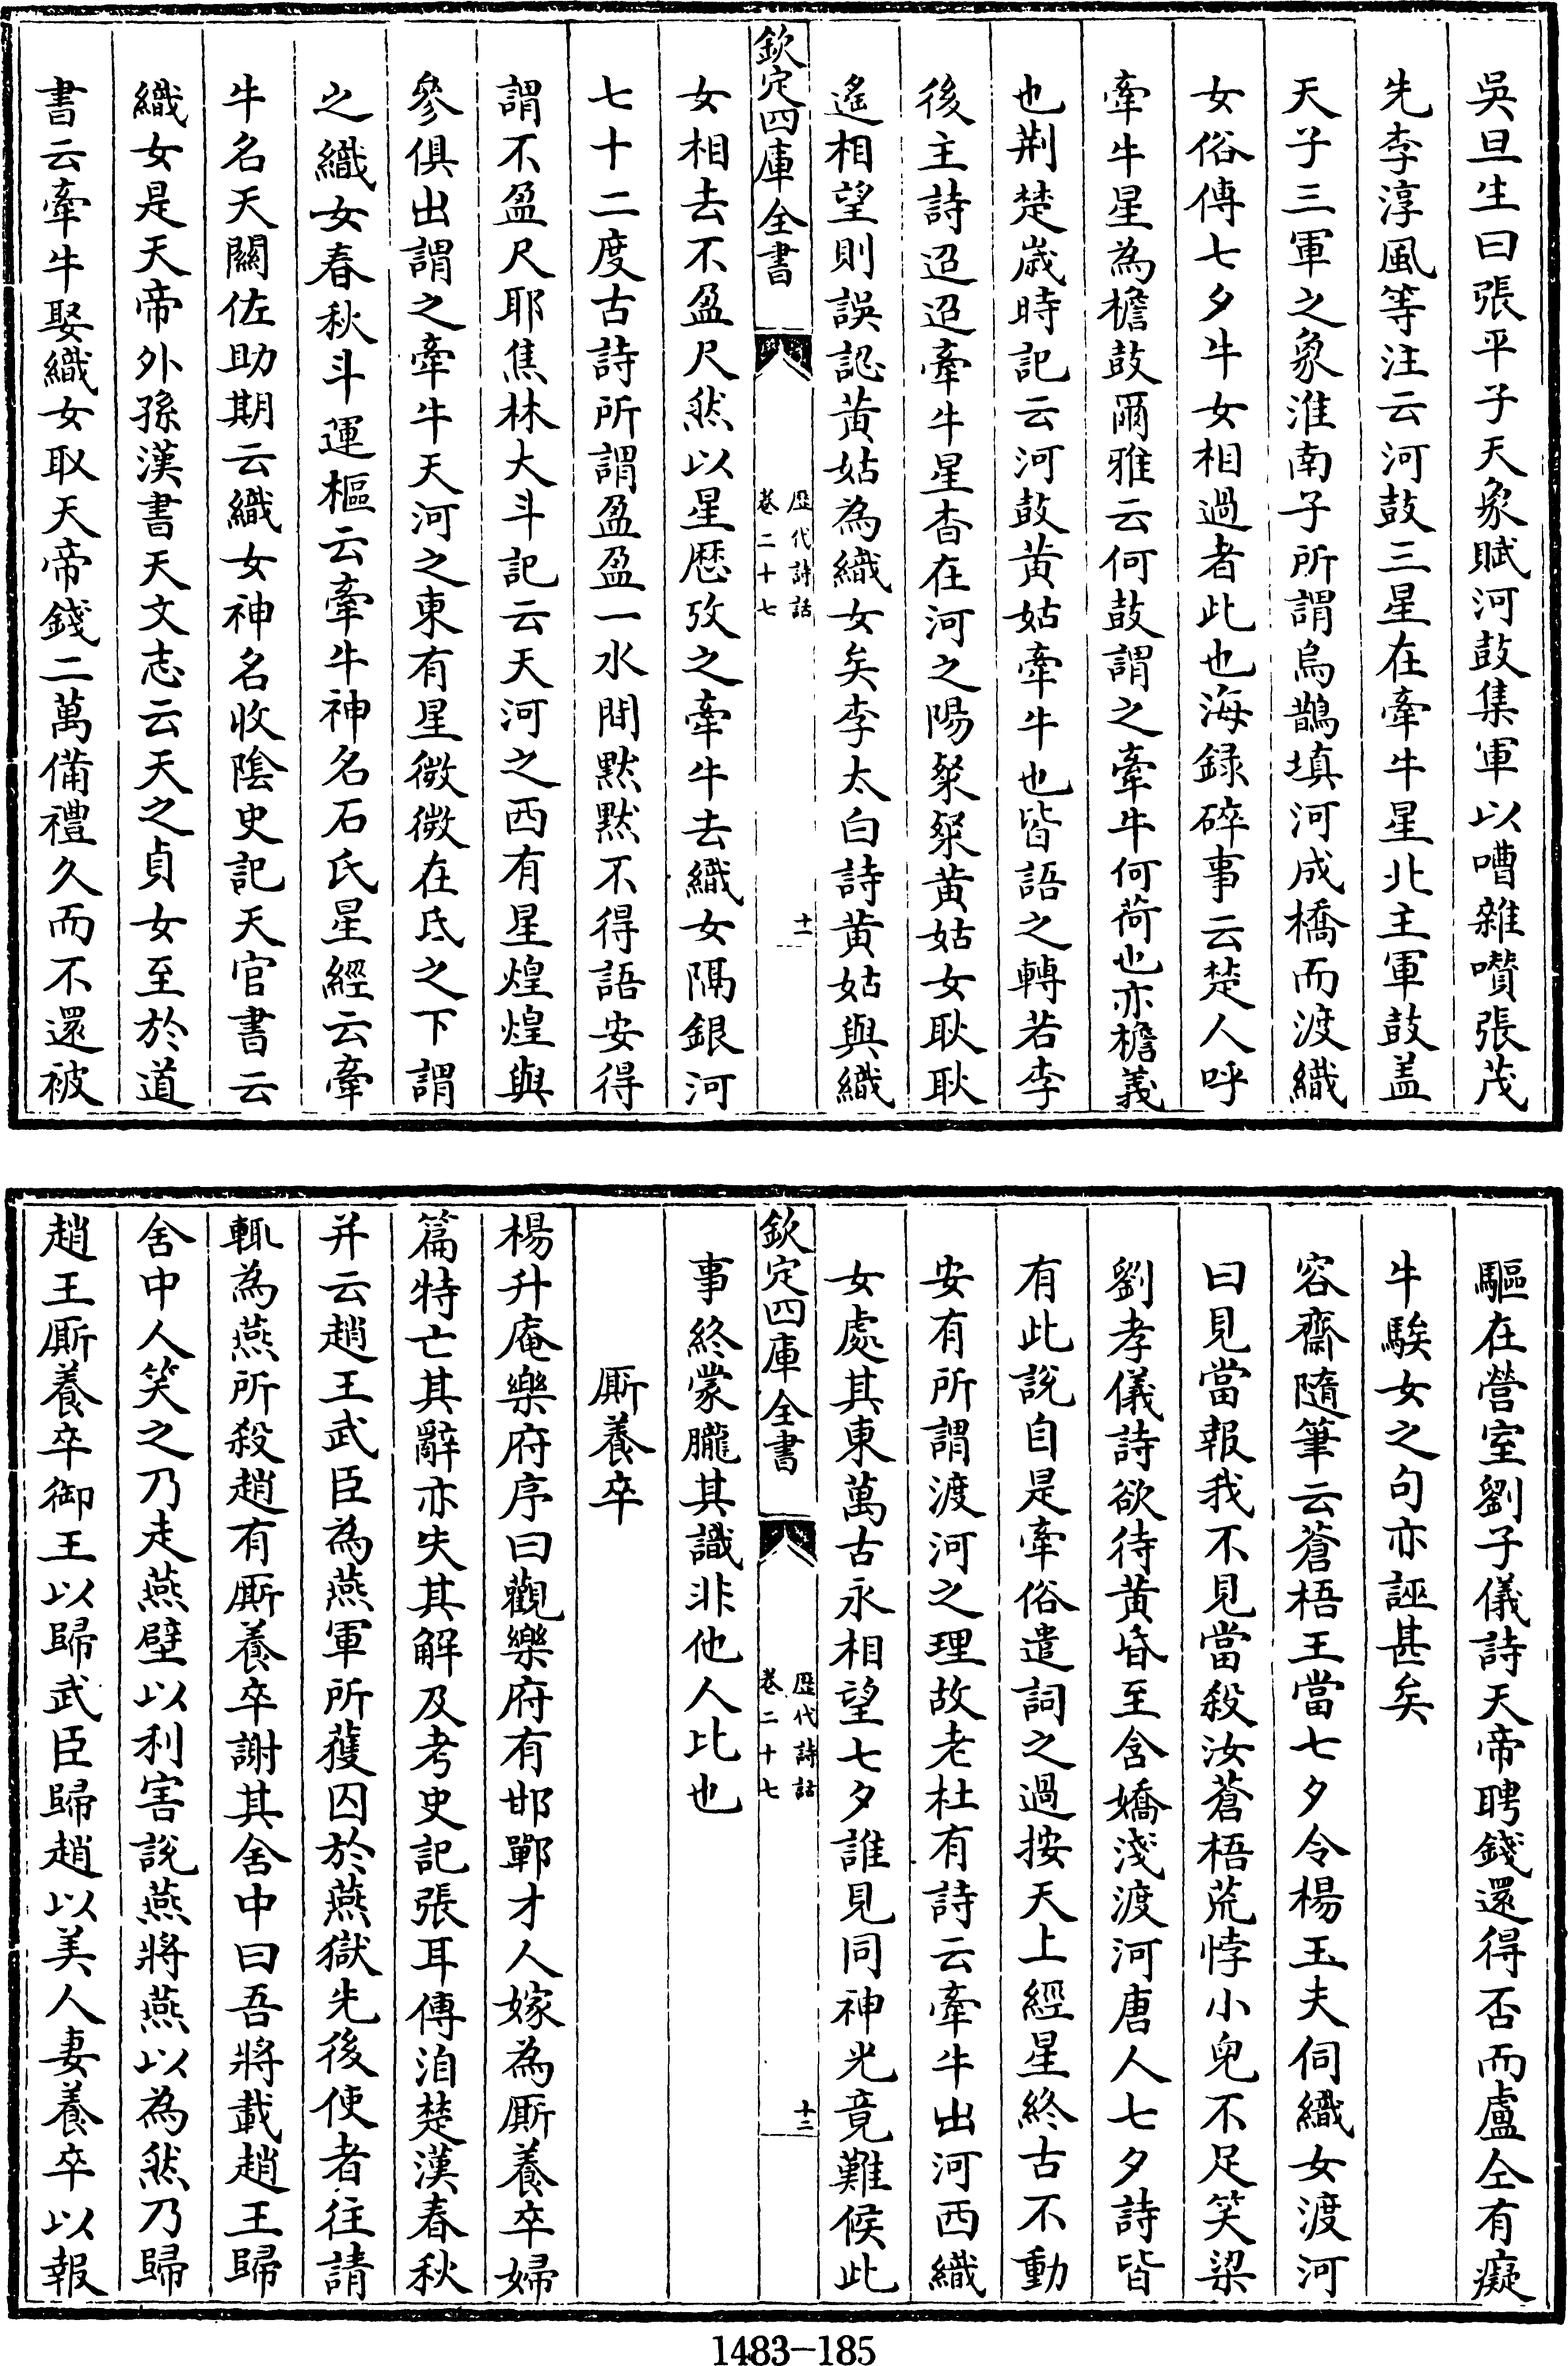 吳旦生曰張平子天象賦河鼓集軍以嘈雜囋張茂
先李淳風等注云河鼓三星在牽牛星北主軍鼓盖
天子三軍之象淮南子所謂烏鵲填河成橋而渡織
女俗傳七夕牛女相過者此也海録碎事云楚人呼
牽牛星為檐鼓爾雅云何鼓謂之牽牛何荷也亦檐義
也荆楚歳時記云河鼓黄姑牽牛也皆語之轉若李
後主詩迢迢牽牛星杳在河之陽粲粲黄姑女耿耿
遙相望則誤認黄姑為織女矣李太白詩黄姑與織
欽定四庫全書
歴代詩話
卷二十七
十一
女相去不盈尺然以星厯攷之牽牛去織女隔銀河
七十二度古詩所謂盈盈一水間黙黙不得語安得
謂不盈尺耶焦林大斗記云天河之西有星煌煌與
參俱出謂之牽牛天河之東有星微微在氐之下謂
之織女春秋斗運樞云牽牛神名石氏星經云牽
牛名天關佐助期云織女神名收陰史記天官書云
織女是天帝外孫漢書天文志云天之貞女至於道
書云牽牛娶織女取天帝錢二萬備禮久而不還被
驅在營室劉子儀詩天帝聘錢還得否而盧仝有癡
牛騃女之句亦誣甚矣
容齋隨筆云蒼梧王當七夕令楊玉夫伺織女渡河
曰見當報我不見當殺汝蒼梧荒悖小兒不足笑梁
劉孝儀詩欲待黄昏至含嬌淺渡河唐人七夕詩皆
有此説自是牽俗遣詞之過按天上經星終古不動
安有所謂渡河之理故老杜有詩云牽牛出河西織
女處其東萬古永相望七夕誰見同神光竟難候此
欽定四庫全書
歴代詩話
卷二十七
十二
事終蒙朧其識非他人比也
厮養卒
楊升庵樂府序曰觀樂府有邯鄲才人嫁為厮養卒婦
篇特亡其辭亦失其解及考史記張耳傳洎楚漢春秋
并云趙王武臣為燕軍所獲囚於燕獄先後使者往請
輒為燕所殺趙有厮養卒謝其舍中曰吾將載趙王歸
舍中人笑之乃走燕壁以利害説燕將燕以為然乃歸
趙王厮養卒御王以歸武臣歸趙以美人妻養卒以報
1483-185